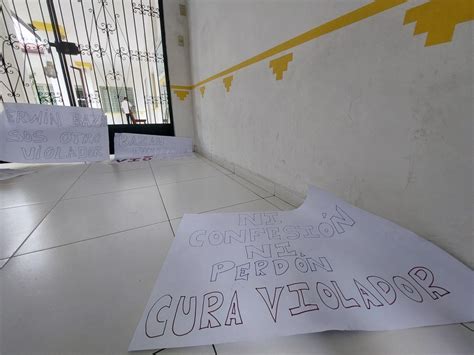 ERWIN BAZA
SOS OTRO
VIOLADOR
BAZAN
NI
CONFESIÓN
NI
PERDÓN
CURA VIOLADOR